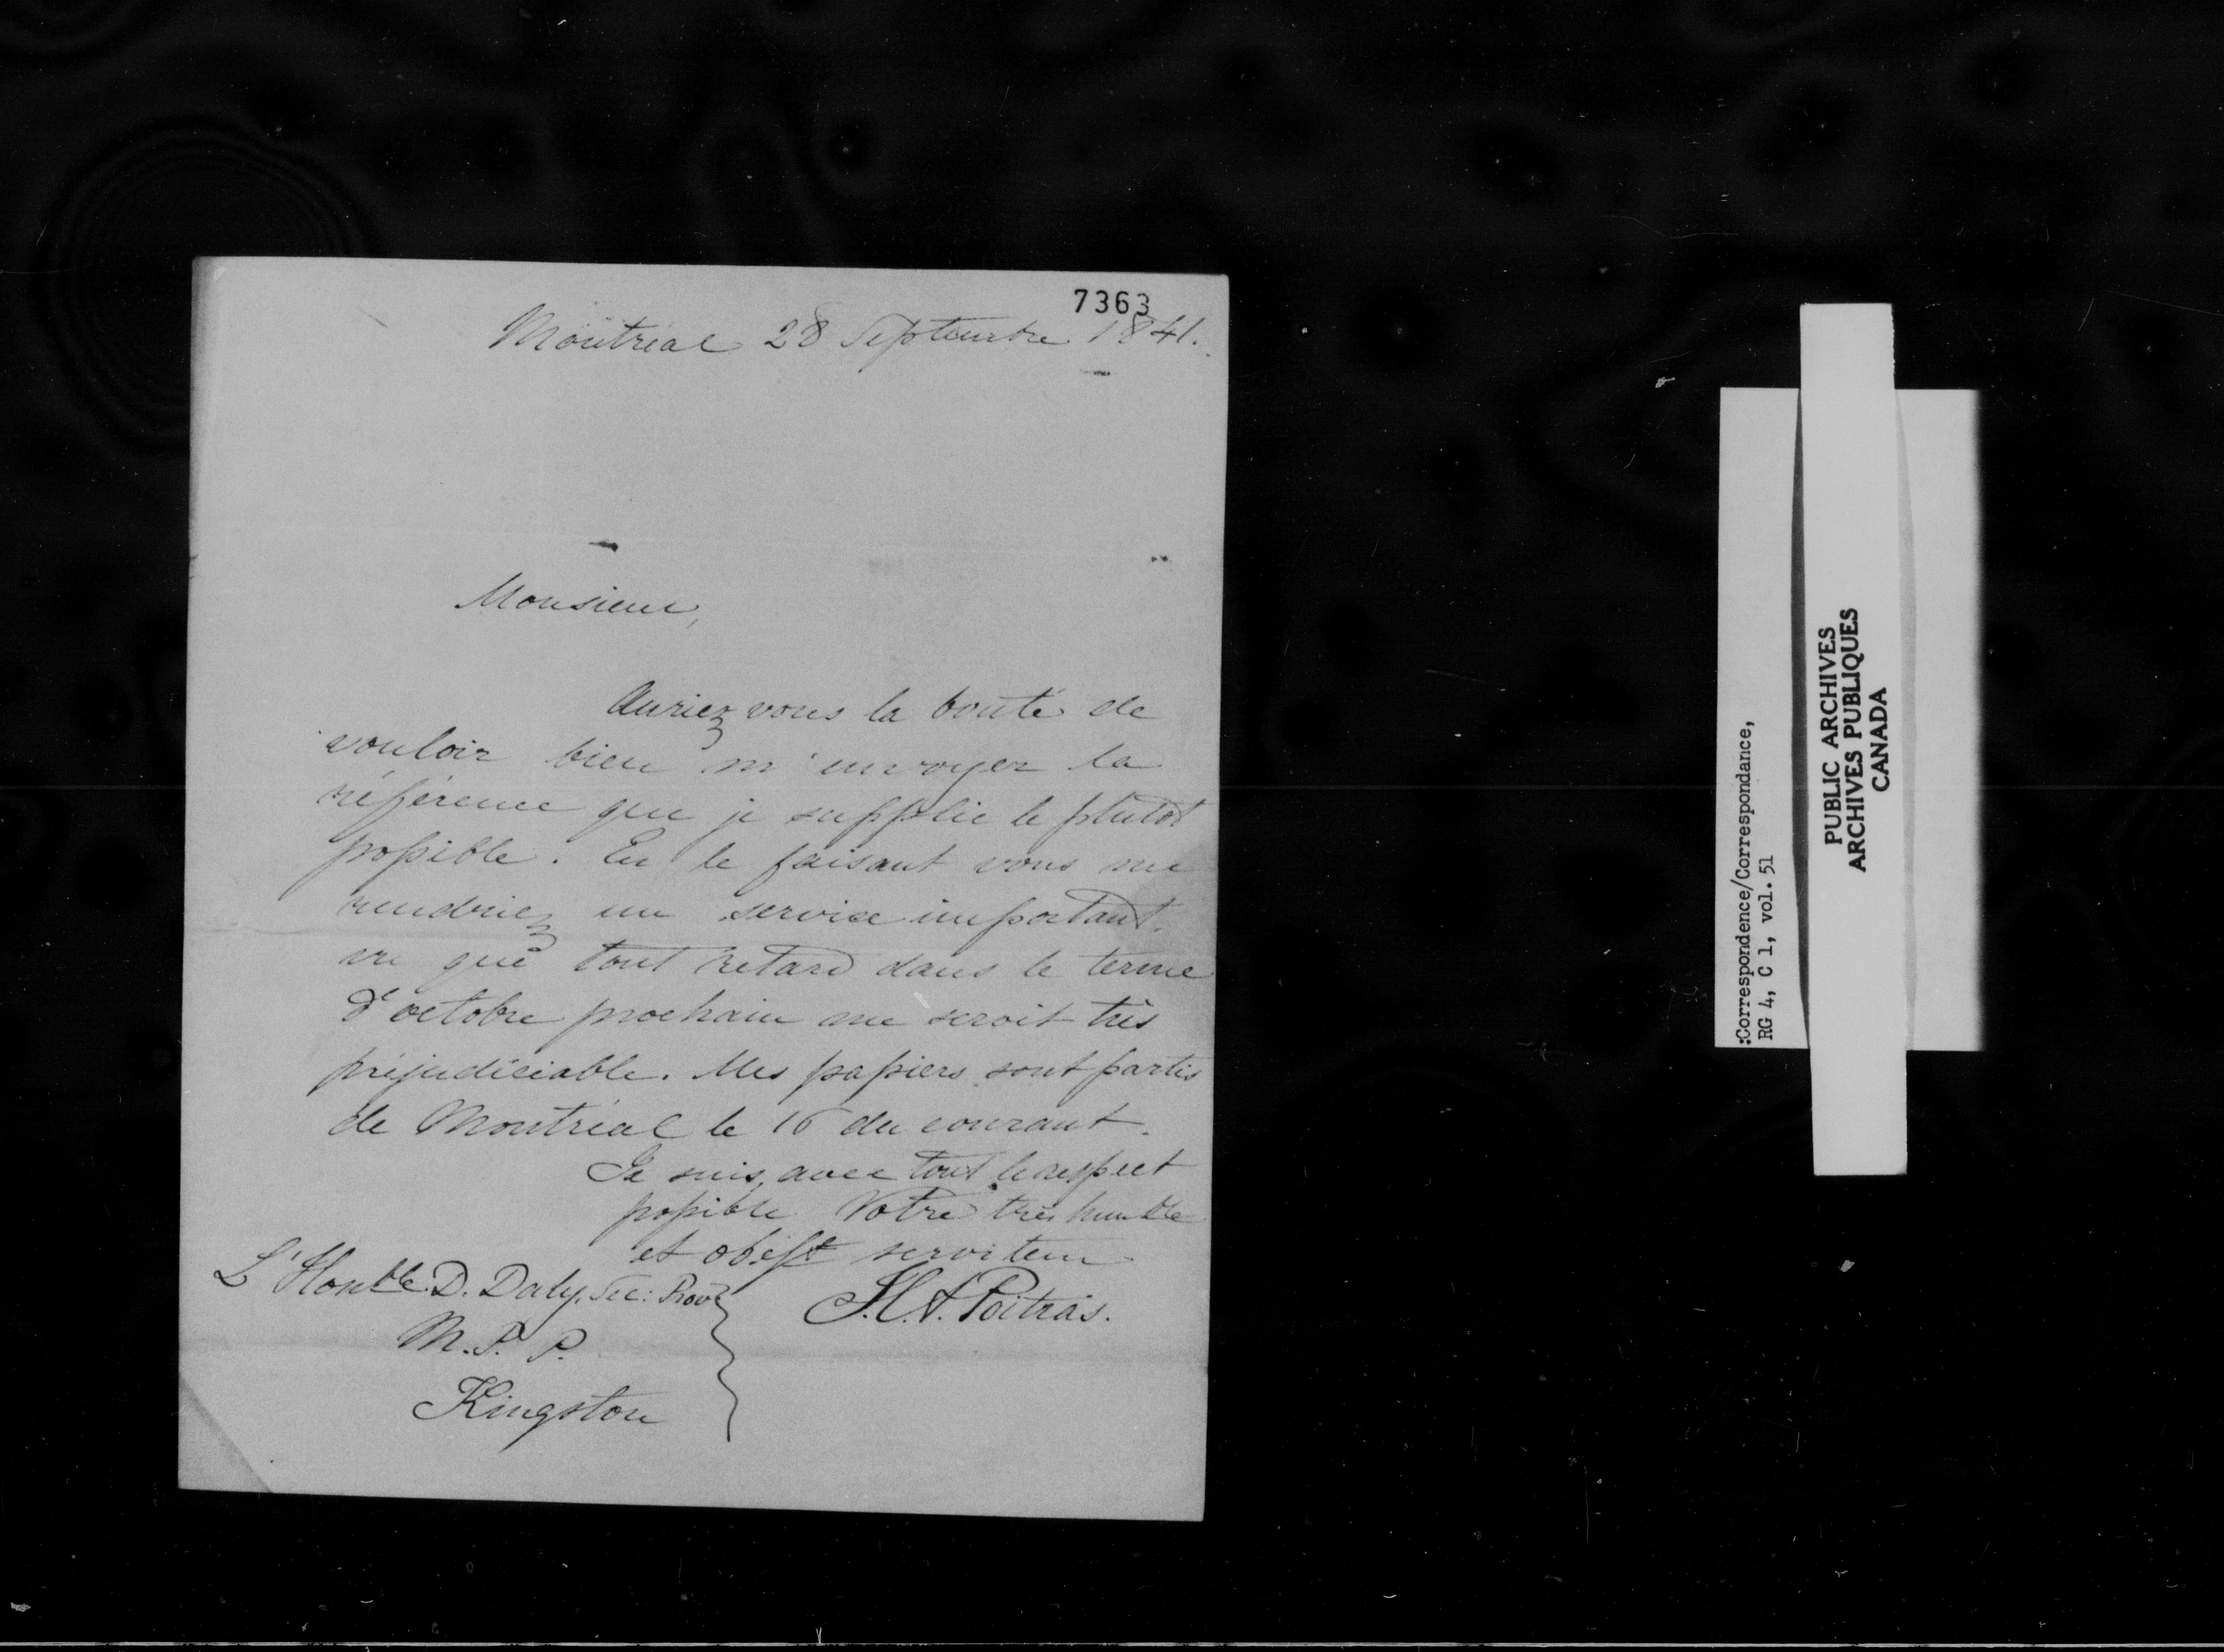 7363
Montréal 28 Septembre 1841.
Monsieur,
Auriez vous la bonté de
vouloir bien m'envoyer la
référence que je supplie le plutôt
possible. En le faisant vous me
rendriez un service important,
vu que tout retard dans le terme
d'octobre prochain me seroit très
préjudiciable. Mes papiers sont partis
de Montréal le 16 du courant.
Je suis, avec tout le respect
possible Votre très humble
et obésst serviteur
L'Honble. D. Daly. Sec: Prov:
M.P.P.
Kingston
Poitras.
:Correspondence/Correspondance,
RG 4, C 1, vol. 51
PUBLIC ARCHIVES
ARCHIVES PUBLIQUES
CANADA